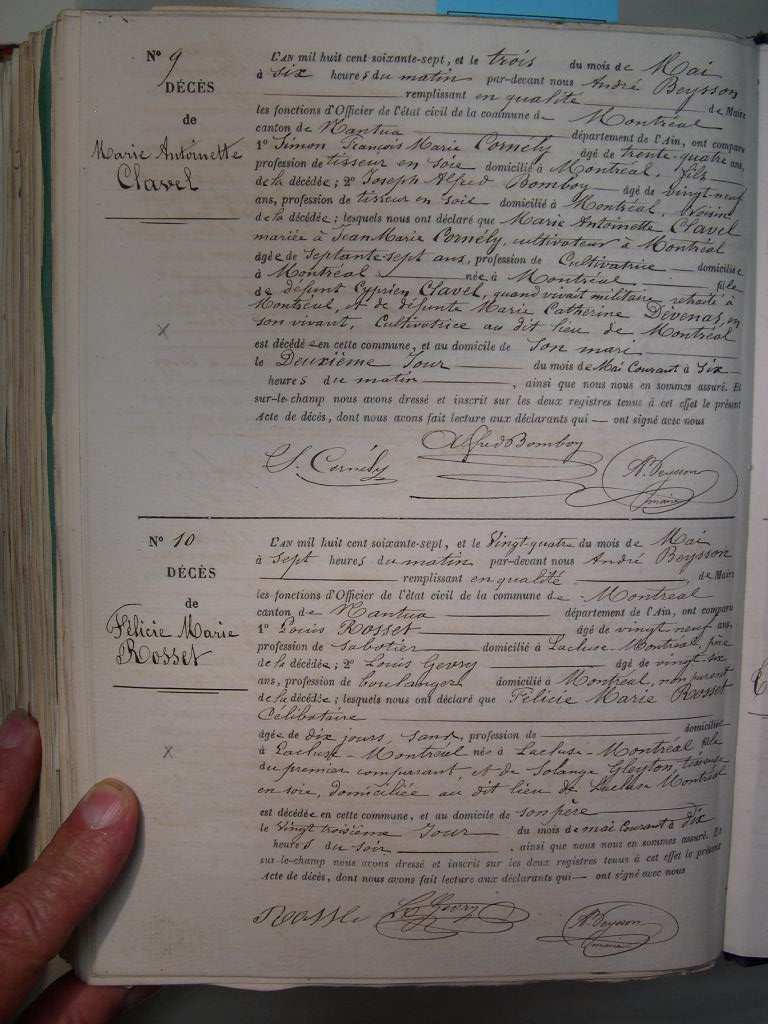 N° 9
DÉCÈS
de
Marie Antoinette
Clavel
L'AN mil huit cent soixante-sept, et le trois du mois de Mai
à six heures du matin par-devant nous André Beysson
remplissant en qualité de Maire
les fonctions d'Officier de l'état civil de la commune de Montréal
canton de Nantua département de l'Ain, ont comparu
1° Simon François Marie Cornély âgé de trente-quatre ans,
profession de tisseur en soie domicilié à Montréal, fils
de la décédée; 2° Joseph Alfred Bomboy âgé de vingt-neuf
ans, profession de tisseur en soie domicilié à Montréal, voisin
de la décédée; lesquels nous ont déclaré que Marie Antoinette Clavel
mariée à Jean Marie Cornély, cultivateur à Montréal
âgée de Septante-sept ans, profession de Cultivatrice domiciliée
à Montréal née à Montréal fille
de défunt Cyprien Clavel, quand vivait militaire retraité à
Montréal, et de défunte Marie Catherine Dévenas, en
son vivant, Cultivatrice au dit lieu de Montréal
est décédée en cette commune, et au domicile de son mari
le Deuxième Jour du mois de Mai Courant à six
heures du matin, ainsi que nous nous en sommes assuré. Et
sur-le-champ nous avons dressé et inscrit sur les deux registres tenus à cet effet le présent
Acte de décès, dont nous avons fait lecture aux déclarants qui — ont signé avec nous
S. Cornély Alfred Bomboy A. Beysson
maire
N° 10
DÉCÈS
de
Félicie Marie
Rosset
L'AN mil huit cent soixante-sept, et le Vingt-quatre du mois de Mai
à Sept heures du matin par-devant nous André Beysson
remplissant en qualité, de Maire
les fonctions d'Officier de l'état civil de la commune de Montréal
canton de Nantua département de l'Ain, ont comparu
1° Louis Rosset âgé de vingt neuf ans,
profession de sabotier domicilié à Lacluse-Montréal, père
de la décédée; 2° Louis Gevry âgé de vingt-six
ans, profession de boulanger domicilié à Montréal, non parent
de la décédée; lesquels nous ont déclaré que Félicie Marie Rosset
Célibataire
âgée de dix jours, sans, profession de domiciliée
à Lacluse-Montréal née à Lacluse-Montréal fille
du premier comparant, et de Solange Gleyton, tisseuse
en soie, domiciliée au dit lieu de Lacluse Montréal
est décédée en cette commune, et au domicile de son père
le Vingt troisième Jour du mois de mai Courant à dix
heures du soir, ainsi que nous nous en sommes assuré. Et
sur-le-champ nous avons dressé et inscrit sur les deux registres tenus à cet effet le présent
Acte de décès, dont nous avons fait lecture aux déclarants qui — ont signé avec nous
Ls Gevry A. Beysson
maire